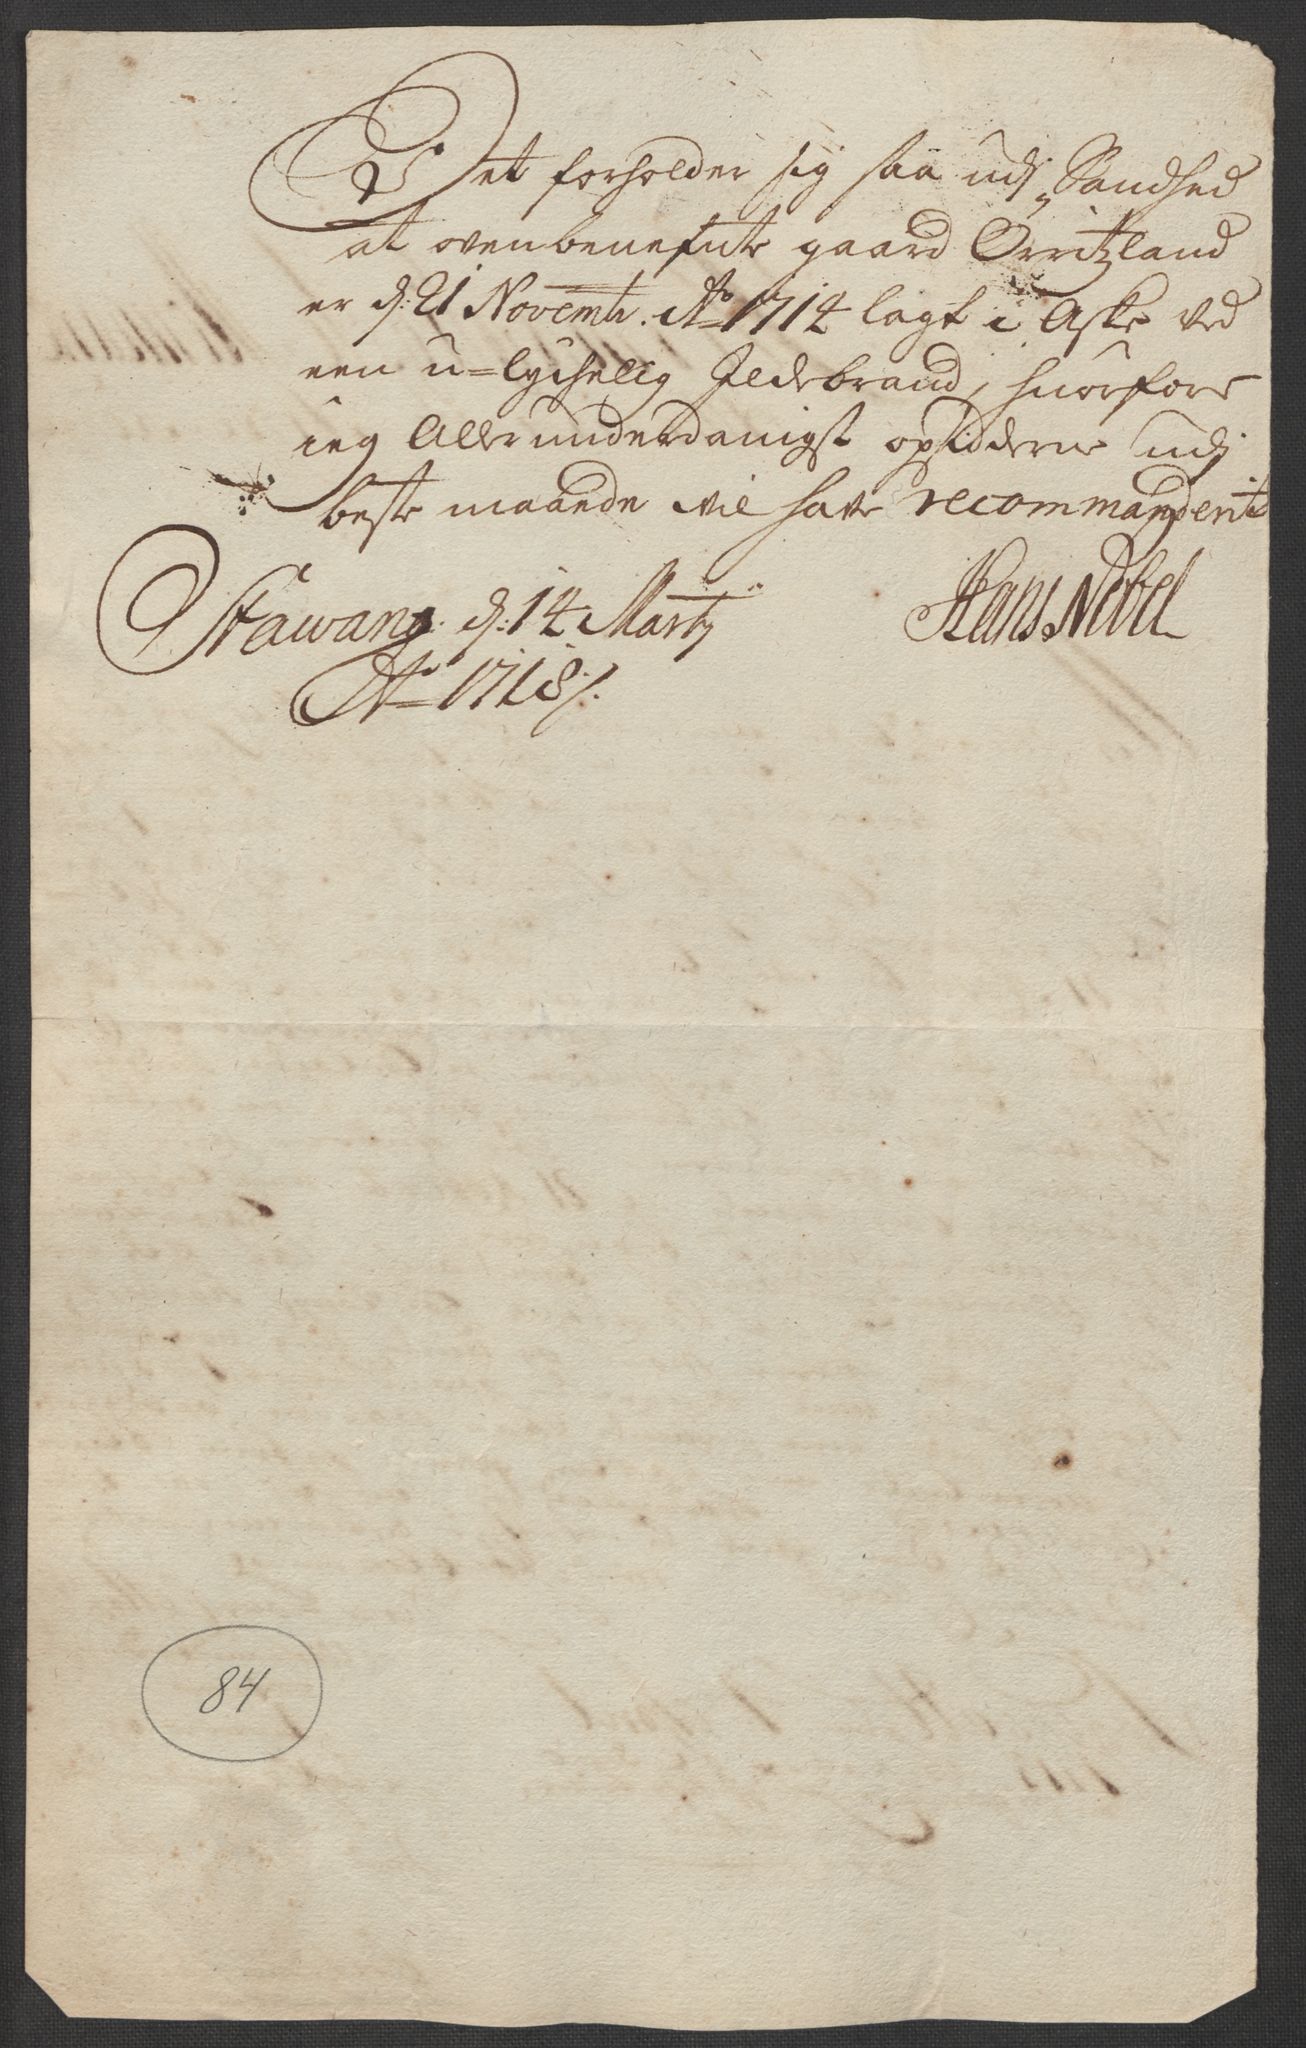 Det forholder sig saa udj Sandhed
at ovenbenefnte gaard Orritzland
er d: 21 Novemb. Ao 1714 lagt i Aske ved
een u=lychelig Ildebrand, huorfore
ieg Allerunderdanigst opsidderne udj
beste maade vil have recommanderit
Stawang d: 14 Martij
Ao 1718 /.
Hans Nobel
84